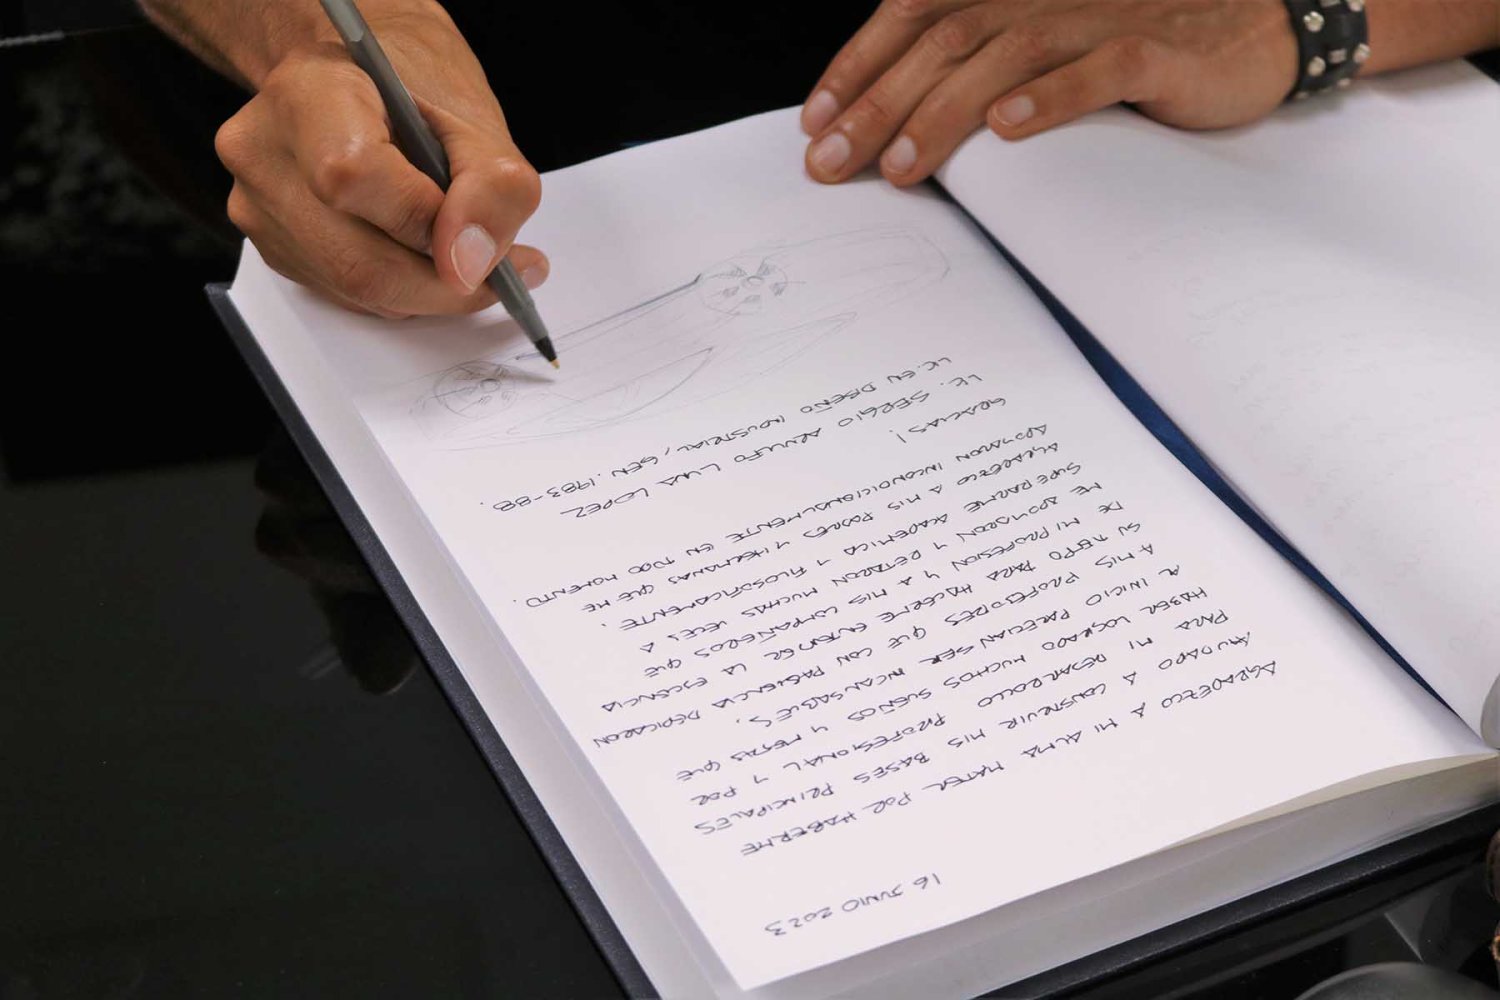 16 JUNIO 2023
AGRADEZCO A MI ALMA MATER POR HABERME
AYUDADO A CONSTRUIR MIS BASES PRINCIPALES
PARA MI DESARROLLO PROFESIONAL Y POR
HABER LOGRADO MUCHOS SUEÑOS Y METAS QUE
AL INICIO PARECIAN SER INCANSABLES.
A MIS PROFESORES QUE CON PASIENCIA DEDICARON
SU TIEMPO PARA HACERME ENTENDER LA ESCENCIA
DE MI PROFESION Y A MIS COMPAÑEROS QUE
ME APOYARON Y RETARON MUCHAS VECES A
SUPERARME ACADEMICA Y FILOSOFICAMENTE.
AGRADEZCO A MIS PADRES Y HERMANAS QUE ME
APOYARON INCONDICIONALMENTE EN TODO MOMENTO.
GRACIAS!
LIC. SERGIO ARNULFO LUNA LOPEZ
LIC. EN DISEÑO INDUSTRIAL, GEN. 1983-88.